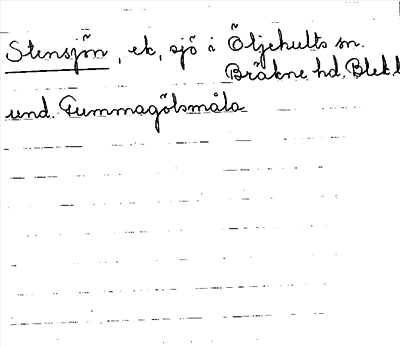 Stensjön, ek, sjö i Öljehults sn.
Bräkne hd. Blek l
und. Gummagölsmåla